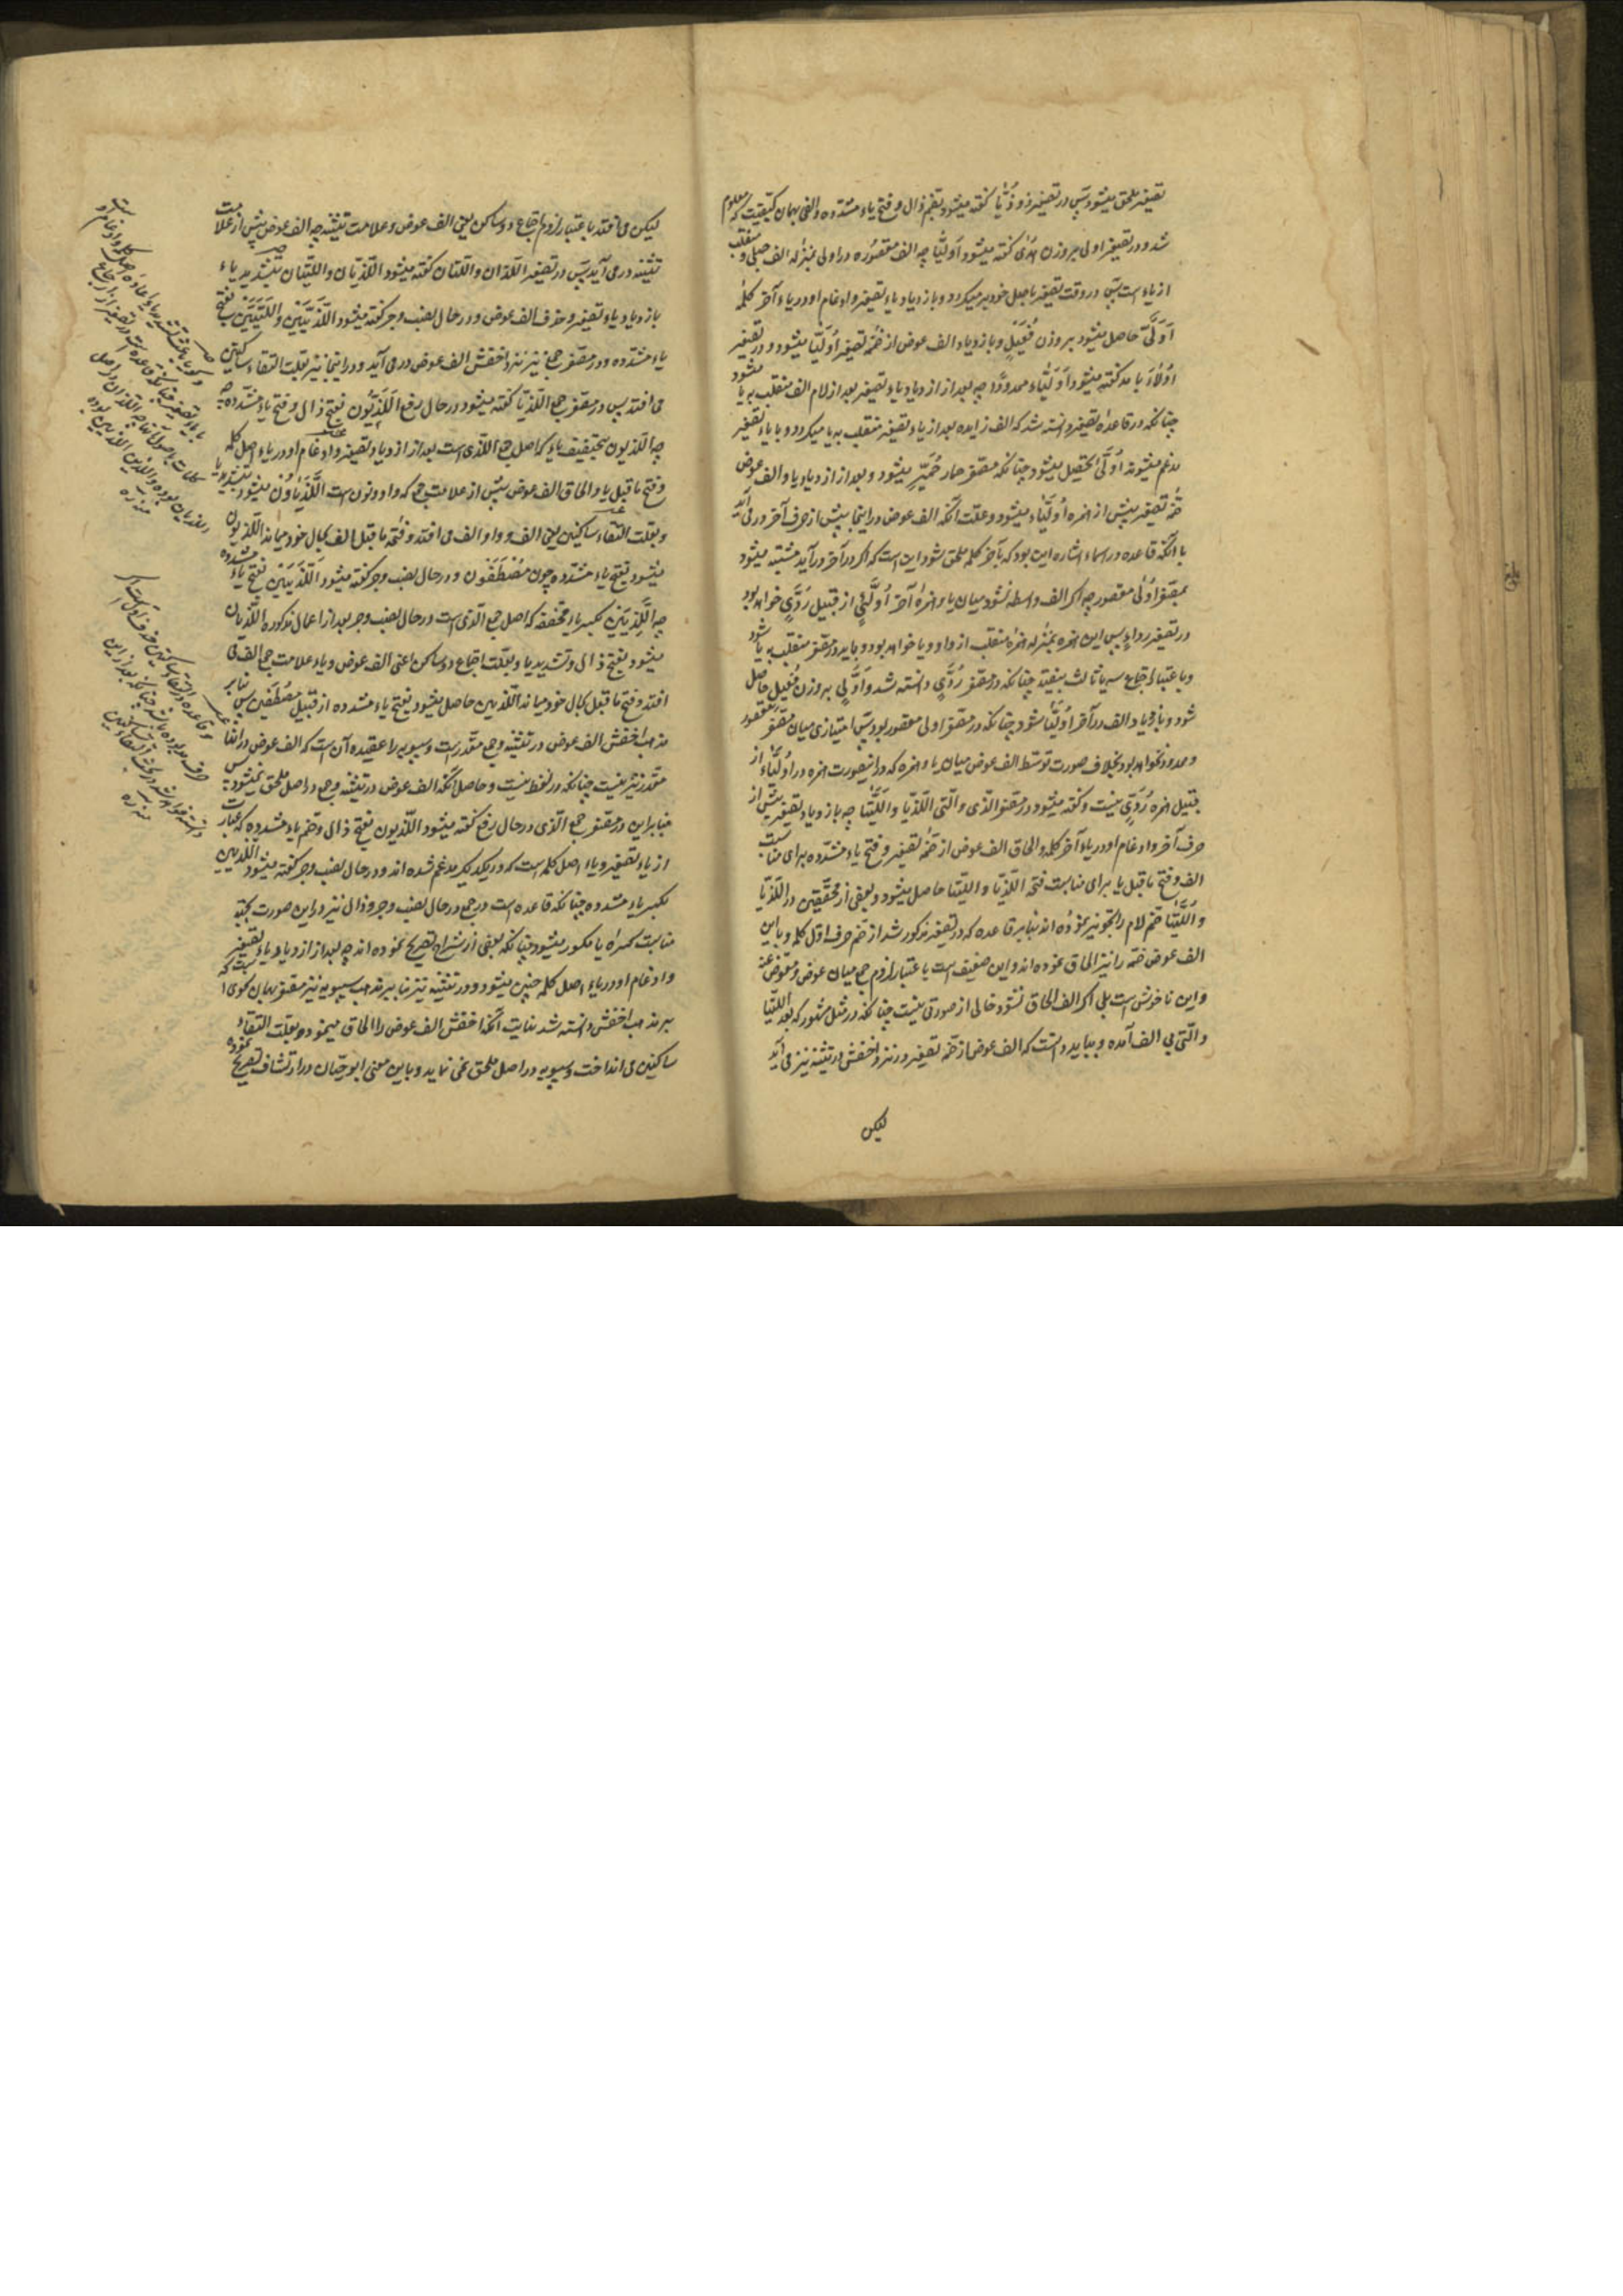 تصغیر ملحق میشود پس در تصغیر ذو ذُیّا گفته میشود بضم ذال و فتح یاء مشدده والفی بهمان کیفیت که معلوم
شد و در تصغیر اولی بر وزن هُدی گفته میشود اُولَیّا چه الف مقصوره در اولی بمنزله الف حبلی و منقلب
از یاء است پس در وقت تصغیر باصل خود بر میگردد و بازدیاد یاء تصغیر و ادغام او در یاء آخر کلمه
اُوَلَیَّ حاصل میشود بر وزن فُعَیل و بازدیاد الف عوض از ضمه تصغیر اُولَیّا میشود و در تصغیر
اُولاءَ با مد گفته میشود اُولَیّاء ممدودًا چه بعد از ازدیاد یاء تصغیر بعد از لام الف منقلب به یا میشود
چنانکه در قاعده تصغیر دانسته شد که الف زایده بعد از یاء تصغیر منقلب به یا میگردد و با یاء تصغیر
مدغم میشود تا اُولَیّئ تحصیل میشود چنانکه مصغر حمار حُمَیِّر میشود و بعد از ازدیاد یا و الف عوض
ضمه تصغیر پیش از همزه اُولَیّاء میشود و علت آنکه الف عوض در اینجا پیش از حرف آخر در می آید
با آنکه قاعده در اسماء اشاره این بود که بآخر کلمه ملحق شود این است که اگر در آخر در آید مشتبه میشود
بمصغر اُولی مقصور چه اگر الف واسطه نشود میان یا و همزه آخر اُولَیّئ از قبیل رُدَیّ خواهد بود
در تصغیر رداء پس این همزه بمنزله همزه منقلب از واو و یا خواهد بود و باید در مصغر منقلب به یا شود
و باعتبار اجتماع سه یا ثالث بیفتد چنانکه در مصغر رُدَیّ دانسته شد و اُولَیّ بر وزن فُعَیل حاصل
شود و بازدیاد الف در آخر اُولَیّا شود چنانکه در مصغر اولی مقصور بود پس امتیازی میان مصغر مقصور
و ممدود نخواهد بود بخلاف صورت توسط الف عوض میان یا و همزه که در اینصورت همزه در اُولَیّاء از
قبیل همزه رُدَیّ نیست و گفته میشود در مصغر الّذی والّتی اللَّذَیّا واللَّتَیّا چه بازدیاد یاء تصغیر پیش از
حرف آخر و ادغام او در یاء آخر کلمه و الحاق الف عوض از ضمه تصغیر و فتح یاء مشدّده برای مناسبت
الف و فتح ماقبل یا برای مناسبت فتحه اللَّذَیّا واللَّتَیّا حاصل میشود و بعضی از محققین در اللَّذَیّا
واللَّتَیّا ضم لام را تجویز نموده اند بنابر قاعده که در تصغیر مذکور شد از ضم حرف اول کلمه و با این
الف عوض ضمه را نیز الحاق نموده اند و این ضعیف است باعتبار لزوم جمع میان عوض و معوض عنه
و این ناخوش است بلی اگر الف الحاق نشود خالی از صورتی نیست چنانکه در مثل مشهور که بعد اللَّتَیّا
والّتی بی الف آمده و بباید دانست که الف عوض از ضمه تصغیر در نزد اخفش در تثنیه نیز می آید
لیکن
لیکن می افتد باعتبار لزوم اجتماع دو ساکن یعنی الف عوض و علامت تثنیه چه الف عوض پیش از علامت
تثنیه در می آید پس در تصغیر اللّذان واللّتان گفته میشود اللَّذَیّان واللَّتَیّان بتشدید یاء
بازدیاد یاء تصغیر و حذف الف عوض و در حال نصب و جر گفته میشود اللَّذَیَّین واللَّتَیَّین بفتح
یاء مشدده و در مصغر جمع نیز نزد اخفش الف عوض در می آید و در اینجا نیز بعلت التقاء ساکنین
می افتد پس در مصغر جمع اللَّذَیّا گفته میشود در حال رفع اللَّذَیُّون بفتح ذال و فتح یاء مشدّده
چه اللّذیون بتخفیف یاء که اصل جمع اللّذی است بعد از ازدیاد یاء تصغیر و ادغام او در یاء اصل کلمه
و فتح ماقبل یا و الحاق الف عوض پیش از علامت جمع که واو و نون است اللَّذَیّاوُن میشود بتشدید یا
و بعلت التقاء ساکنین یعنی الف و واو الف می افتد و فتحه ماقبل الف بحال خود میماند اللّذیون
میشود بفتح یاء مشدده چون مُصْطَفَوْن و در حال نصب و جر گفته میشود اللَّذَیَّیْن بفتح یاء مشدده
چه اللَّذِیِین بکسر یاء مخففه که اصل جمع الّذی است در حال نصب و جر بعد از اعمال مذکوره اللّذیاین
میشود بفتح ذال و تشدید یا و بعلت اجتماع دو ساکن اعنی الف عوض و یاء علامت جمع الف می
افتد و فتح ماقبل بحال خود میماند اللّذیین حاصل میشود بفتح یاء مشدده از قبیل مصطَفَین پس بنابر
مذهب اخفش الف عوض در تثنیه و جمع مقدر است و سیبویه را عقیده آن است که الف عوض در اینها
مقدر نیز نیست چنانکه در لفظ نیست و حاصل آنکه الف عوض در تثنیه و جمع در اصل ملحق نمیشود پس
بنابراین در مصغر جمع الّذی در حال رفع گفته میشود اللّذیون بفتح ذال و ضم یاء مشدده که عبارت
از یاء تصغیر و یاء اصل کلمه است که در یکدیگر مدغم شده اند و در حال نصب و جر گفته میشود اللّذیین
بکسر یاء مشدده چنانکه قاعده است در جمع در حال نصب و جر و ذال نیز در این صورت بجهة
مناسبت کسره یا مکسور میشود چنانکه بعضی از شراح تصریح نموده اند چه بعد از ازدیاد یاء تصغیر
و ادغام او در یاء اصل کلمه چنین میشود و در تثنیه نیز بنابر مذهب سیبویه نیز مصغر بهمان نحوی است که
بر مذهب اخفش دانسته شد نهایت آنکه اخفش الف عوض را الحاق مینمود و بعلت التقاء
ساکنین می انداخت و سیبویه در اصل ملحق نمی نماید و باین معنی ابوحیان در ارتشاف تصریح نموده